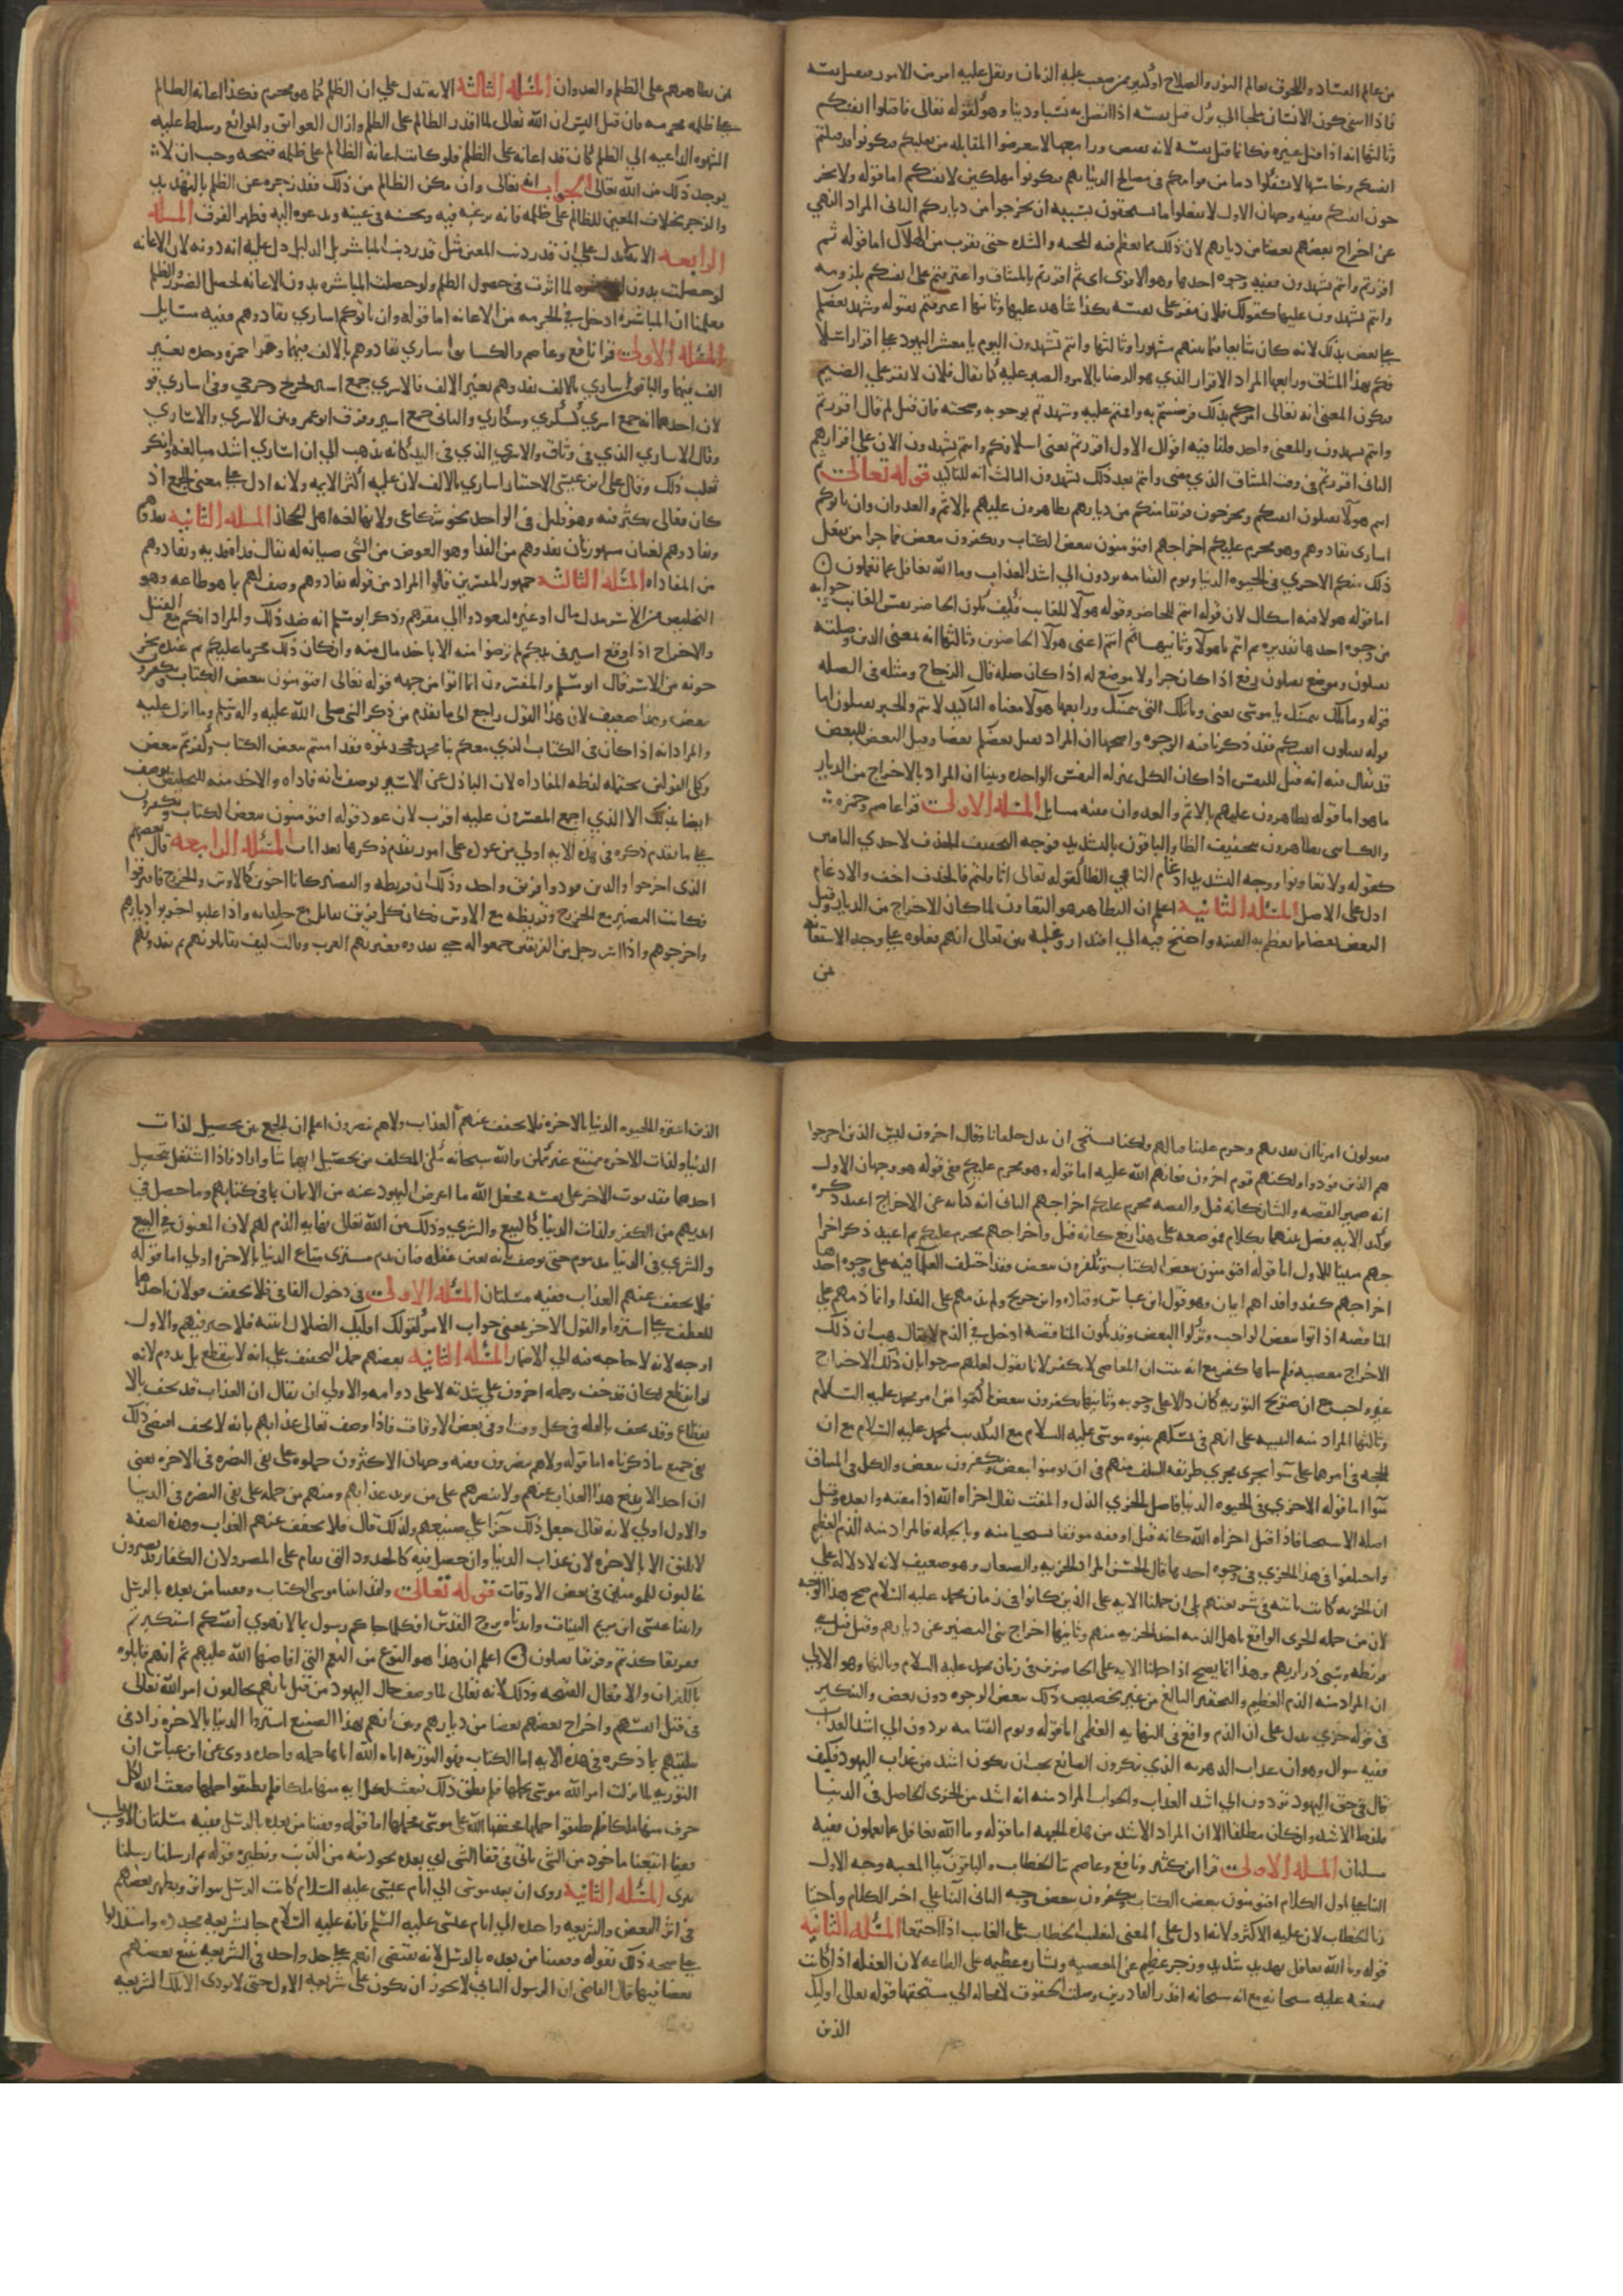 من عالم الفساد واللحوق بعالم النور والصلاح او كثير ممن صعب عليه الزمان وثقل عليه امر من الامور فيقتل نفسه
فاذا انتفى كون الانسان ملجا الى ترك قتل نفسه اذا اتصل به نسبا ودينا وهو كقوله تعالى فاقتلوا انفسكم
وثالثها انه اذا قتل غيره فكانما قتل نفسه لانه يقتص ورابعها لا تتعرضوا لمقاتلة من يقتلكم فتكونوا قد قتلتم
انفسكم وخامسها لا تسفكوا دما من قوامكم في مصالح الدنيا بهم فتكونوا مهلكين لانفسكم اما قوله ولا تخر
جون انفسكم ففيه وجهان الاول لا تفعلوا ما تستحقون بسببه ان تخرجوا من دياركم الثاني المراد النهي
عن اخراج بعضهم بعضا من ديارهم لان ذلك مما يعظم فيه المحنة والشدة حتى يقرب من الهلاك اما قوله ثم
اقررتم وانتم تشهدون ففيه وجوه احدها وهو الاقوى اي ثم اقررتم بالميثاق واعترفتم على انفسكم بلزومه
وانتم تشهدون عليها كقولك فلان مقر على نفسه بكذا شاهد عليها وثانيها اعترفتم بقوله وشهد بعضكم
على بعض بذلك لانه كان شائعا فيما بينهم مشهورا وثالثها وانتم تشهدون اليوم يا معشر اليهود على اقرار اسلا
فكم بهذا الميثاق ورابعها المراد الاقرار الذي هو الرضا بالامر والصبر عليه كما يقال فلان لا يقر على الضيم
فيكون المعنى انه تعالى امركم بذلك فرضيتم به واقمتم عليه وشهدتم بوجوبه وصحته فان قيل لم قال اقررتم
وانتم تشهدون والمعنى واحد قلنا فيه اقوال الاول اقررتم يعني اسلافكم وانتم تشهدون الان على اقرارهم
الثاني اقررتم في وقت الميثاق الذي مضى وانتم بعد ذلك تشهدون الثالث انه للتاكيد قوله تعالى ثم
انتم هولا تقتلون انفسكم وتخرجون فريقا منكم من ديارهم تظاهرون عليهم بالاثم والعدوان وان ياتوكم
اسارى تفادوهم وهو محرم عليكم اخراجهم افتومنون ببعض الكتاب وتكفرون ببعض فما جزا من يفعل
ذلك منكم الا خزي في الحيوه الدنيا ويوم القيامه يردون الى اشد العذاب وما الله بغافل عما تعملون
اما قوله هولا فيه اشكال لان قوله انتم للحاضر وقوله هولا للغايب فكيف يكون الحاضر نفس الغايب جوابه
من وجوه احدها تقديره ثم انتم يا هولا وثانيها ثم انتم اعني هولا الحاضرون وثالثها انه بمعنى الذين وصلته
تقتلون وموضع تقتلون رفع اذا كان خبرا ولا موضع له اذا كان صله قال الزجاج ومثله في الصله
قوله وما تلك بيمينك يا موسى يعني وما تلك التي بيمينك ورابعها هولا معناه التاكيد لانتم والخبر تقتلون اما
قوله تقتلون انفسكم فقد ذكرنا فيه الوجوه واصحها ان المراد يقتل بعضكم بعضا وقتل البعض للبعض
قد يقال فيه انه قتل للنفس اذا كان الكل بمنزله النفس الواحده وبينا ان المراد بالاخراج من الديار
ما هو اما قوله تظاهرون عليهم بالاثم والعدوان ففيه مسايل المسئله الاولى قرا عاصم وحمزه
والكسائي تظاهرون بتخفيف الظا والباقون بالتشديد فوجه التخفيف الحذف لاحدى التائين
كقوله ولا تعاونوا ووجه التشديد ادغام التا في الظا كقوله تعالى اثاقلتم فالحذف اخف والادغام
ادل على الاصل المسئله الثانيه اعلم ان التظاهر هو التعاون لما كان الاخراج من الديار وقتل
البعض بعضا مما يعظم به الفتنه واحتيج فيه الى اقتدار وغلبه بين تعالى انهم فعلوه على وجه الاستعانه
من
من يظاهرهم على الظلم والعدوان المسئله الثالثه الايه تدل على ان الظلم كما هو محرم فكذا اعانه الظالم
على ظلمه محرمه فان قيل اليس ان الله تعالى لما اقدر الظالم على الظلم وازال العوايق والموانع وسلط عليه
الشهوه الداعيه الى الظلم كان قد اعانه على الظلم فلو كانت اعانه الظالم على ظلمه قبيحه وجب ان لا
يوجد ذلك من الله تعالى الجواب انه تعالى وان مكن الظالم من ذلك فقد زجره عن الظلم بالتهديد
والزجر بخلاف المعين للظالم على ظلمه فانه يرغبه فيه ويحسنه في عينه ويدعوه اليه فظهر الفرق المسئله
الرابعه الايه لا تدل على ان قدر ذنب المعين مثل قدر ذنب المباشر بل الدليل دل عليه انه دونه لان الاعانه
لو حصلت بدون لما اثرت في حصول الظلم ولو حصلت المباشره بدون الاعانه لحصل الضرر والظلم
فعلمنا ان المباشره ادخل في الحرمه من الاعانه اما قوله وان ياتوكم اسارى تفادوهم ففيه مسايل
المسئله الاولى قرا نافع وعاصم والكسائي اسارى تفادوهم بالالف فيهما وقرا حمزه وحده بغير
الف فيهما والباقون اسارى بالالف تفدوهم بغير الالف فالاسرى جمع اسير كجريح وجرحى وفي اسارى قو
لان احدهما انه جمع اسرى كسكرى وسكارى والثاني جمع اسير وفرق ابو عمرو بين الاسرى والاسارى
وقال الاسارى الذين في وثاق والاسرى الذي في اليد كانه يذهب الى ان اسارى اشد مبالغه وانكر
ثعلب ذلك وقال علي ابن عيسى الاختيار اسارى بالالف لان عليه اكثر الايمه ولانه ادل على معنى الجمع اذ
كان يقال بكثره فيه وهو قليل في الواحد نحو شكاعى ولانها لغه اهل الحجاز المسئله الثانيه تفدوهم
وتفادوهم لغتان مشهورتان تفدوهم من الفدا وهو العوض من الشي صيانه له يقال فداه فديه وتفادوهم
من المفاداه المسئله الثالثه جمهور المفسرين قالوا المراد من قوله تفادوهم وصف لهم بما هو طاعه وهو
التخليص من الاسر ببذل مال او غيره ليعودوا الى مقرهم وذكر ابو مسلم انه ضد ذلك والمراد انكم مع القتل
والاخراج اذا وقع اسير في يدكم لم ترضوا منه الا باخذ مال منه وان كان ذلك محرما عليكم ثم عنده تخر
جونه من الاسر قال ابو مسلم والمفسرون انما اتوا من جهه قوله تعالى افتومنون ببعض الكتاب وتكفرون
ببعض وهذا ضعيف لان هذا القول راجع الى ما تقدم من ذكر النبي صلى الله عليه واله وسلم وما انزل عليه
والمراد انه اذا كان في الكتاب الذي معكم نبا محمد فجحدتموه فقد امنتم ببعض الكتاب وكفرتم ببعض
وكلى القولين يحتمله لفظه المفاداه لان الباذل عن الاسير يوصف بانه فاداه والاخذ منه للتخليص يوصف
ايضا بذلك الا ان الذي اجمع المفسرون عليه اقرب لان عود قوله افتومنون ببعض الكتاب وتكفرون ببعض
على ما تقدم ذكره في هذه الايه اولى من عوده على امور تقدم ذكرها بعد ايات المسئله الرابعه قال بعضهم
الذي اخرجوا والذين فودوا فريق واحد وذلك ان قريظه والنضير كانا اخوين كالاوس والخزرج فافترقوا
فكانت النضير مع الخزرج وقريظه مع الاوس فكان كل فريق يقاتل مع حلفايه واذا غلبوا خربوا ديارهم
واخرجوهم واذا اسر رجل من الفريقين جمعوا له حتى يفدوه فعيرتهم العرب وقالت كيف تقاتلونهم ثم تفدونهم
فيقولون امرنا ان نفديهم وحرم علينا قتالهم ولكنا نستحي ان نذل حلفانا وقال اخرون ليس الذين اخرجوا
هم الذين فودوا ولكنهم قوم اخرون فعابهم الله عليه اما قوله وهو محرم عليكم ففي قوله هو وجهان الاول
انه ضمير القصه والشان كانه قيل والقصه محرم عليكم اخراجهم الثاني انه كنايه عن الاخراج اعيد ذكره
توكيدا لانه فصل بينهما بكلام فموضعه على هذا رفع كانه قيل واخراجهم محرم عليكم ثم اعيد ذكر اخرا
جهم مبينا للاول اما قوله افتومنون ببعض الكتاب وتكفرون ببعض فقد اختلف العلما فيه على وجوه احدها
اخراجهم كفر وفداهم ايمان وهو قول ابن عباس وقتاده وابن جريج ولم يذمهم على الفدا وانما ذمهم على
المناقضه اذ اتوا ببعض الواجب وتركوا البعض وقد تكون المناقضه ادخل في الذم لا يقال هب ان ذلك
الاخراج معصيه فلم سماها كفرا مع انه ثبت ان المعاصي لا يكفر لانا نقول لعلهم صرحوا بان ذلك الاخراج
غير واجب مع ان صريح التوريه كان دالا على وجوبه وثانيها تكفرون ببعض كتموا من امر محمد عليه السلام
وثالثها المراد منه التنبيه على انهم في تمسكهم بنبوه موسى عليه السلام مع التكذيب لمحمد عليه السلام مع ان
الحجه في امرهما على سوا يجري مجرى طريقه السلف منهم في ان يومنوا ببعض ويكفرون ببعض والكل في الميثاق
سوا اما قوله الا خزي في الحيوه الدنيا فاصل الخزي الذل والمقت يقال اخزاه الله اذا مقته وابعده وقيل
اصله الاستحيا فاذا قيل اخزاه الله كانه قيل اوقعه موقفا يستحيا منه وبالجمله فالمراد منه الذم العظيم
واختلفوا في هذا الخزي في وجوه احدها قال الحسن المراد الجزيه والصغار وهو ضعيف لانه لا دلاله على
ان الجزيه كانت ثابته في شريعتهم بلى ان حملنا الايه على الذين كانوا في زمان محمد عليه السلام صح هذا الوجه
لان من جمله الخزي الواقع باهل الذمه اخذ الجزيه منهم وثانيها اخراج بني النضير عن ديارهم وقتل بني
قريظه وسبي ذراريهم وهذا انما يصح اذا حملنا الايه على الحاضرين في زمان محمد عليه السلام وثالثها وهو الاولى
ان المراد منه الذم العظيم والتحقير البالغ من غير تخصيص ذلك ببعض الوجوه دون بعض والتنكير
في قوله خزي يدل على ان الذم واقع في النهايه العظمى اما قوله ويوم القيامه يردون الى اشد العذاب
ففيه سوال وهو ان عذاب الدهريه الذي ينكرون الصانع يجب ان يكون اشد من عذاب اليهود فكيف
قال في حق اليهود يردون الى اشد العذاب والجواب المراد منه انه اشد من الخزي الحاصل في الدنيا
فلفظ الاشد وان كان مطلقا الا ان المراد الاشد من هذه الجهه اما قوله وما الله بغافل عما تعملون ففيه
مسئلتان المسئله الاولى قرا ابن كثير ونافع وعاصم بتا الخطاب والباقون بيا المغيبه وجه الاول
البنا على اول الكلام افتومنون ببعض الكتاب وتكفرون ببعض وجه الثاني البنا على اخر الكلام واختيا
ر تا الخطاب لان عليه الاكثر ولانه ادل على المعنى لتغليب الخطاب على الغايب اذا اجتمعا المسئله الثانيه
قوله وما الله بغافل تهديد شديد وزجر عظيم عن المعصيه وبشاره عظيمه على الطاعه لان الغفله اذا كانت
ممتنعه عليه سبحانه مع انه سبحانه اقدر القادرين وصلت الحقوق لا محاله الى مستحقها قوله تعالى اوليك
الذين
الذين اشتروا الحيوه الدنيا بالاخره فلا يخفف عنهم العذاب ولا هم ينصرون اعلم ان الجمع بين تحصيل لذات
الدنيا ولذات الاخره ممتنع غير ممكن والله سبحانه مكن المكلف من تحصيل ايهما شا واراد فاذا اشتغل بتحصيل
احدهما فقد فوت الاخر على نفسه فجعل الله ما اعرض اليهود عنه من الايمان بما في كتابهم وما حصل في
ايديهم من الكفر ولذات الدنيا كالبيع والشرى وذلك من الله تعالى نهايه الذم لهم لان المغبون في البيع
والشرى في الدنيا مذموم حتى يوصف بانه تغير عقله فبان يذم مشتري متاع الدنيا بالاخره اولى اما قوله
فلا يخفف عنهم العذاب ففيه مسئلتان المسئله الاولى في دخول الفا في فلا يخفف قولان احدهما
للعطف على اشتروا والقول الاخر بمعنى جواب الامر كقولك اوليك الضلال انتبه فلا خير فيهم والاول
اوجه لانه لا حاجه فيه الى الاضمار المسئله الثانيه بعضهم حمل التخفيف على انه لا ينقطع بل يدوم لانه
لو انقطع لكان قد خف وحمله اخرون على شدته لا على دوامه والاولى ان يقال ان العذاب قد يخف بالا
نقطاع وقد يخف بالقله في كل وقت وفي بعض الاوقات فاذا وصف تعالى عذابهم بانه لا يخفف اقتضى ذلك
نفي جميع ما ذكرناه اما قوله ولا هم ينصرون ففيه وجهان الاكثرون حملوه على نفي النصره في الاخره يعني
ان احدا لا يدفع هذا العذاب عنهم ولا ينصرهم على من يريد عذابهم ومنهم من حمله على نفي النصره في الدنيا
والاول اولى لانه تعالى جعل ذلك جزا على صنيعهم ولذلك قال فلا يخفف عنهم العذاب وهذه الصفه
لا تليق الا بالاخره لان عذاب الدنيا وان حصل فيه كالحدود التي تقام على المصر ولان الكفار قد يصيرون
غالبين للمومنين في بعض الاوقات قوله تعالى ولقد اتينا موسى الكتاب وقفينا من بعده بالرسل
واتينا عيسى ابن مريم البينات وايدناه بروح القدس افكلما جاكم رسول بما لا تهوى انفسكم استكبرتم
ففريقا كذبتم وفريقا تقتلون اعلم ان هذا هو النوع من النعم التي افاضها الله عليهم ثم انهم قابلوه
بالكفران والافعال القبيحه وذلك لانه تعالى لما وصف حال اليهود من قبل بانهم يخالفون امر الله تعالى
في قتل انفسهم واخراج بعضهم بعضا من ديارهم وبين انهم بهذا الصنيع اشتروا الدنيا بالاخره زاد في
تبكيتهم بما ذكره في هذه الايه اما الكتاب فهو التوريه اتاه الله اياها جمله واحده روى عن ابن عباس ان
التوريه لما نزلت امر الله موسى بحملها فلم يطق ذلك فبعث لكل ايه منها ملكا فلم يطيقوا حملها فبعث الله لكل
حرف منها ملكا فلم يطيقوا حملها فخففها الله على موسى فحملها اما قوله وقفينا من بعده بالرسل ففيه مسئلتان الاولى
قفينا اتبعنا ماخوذ من الشي ياتي في قفا الشي اي بعده نحو ذنبه من الذنب ونظيره قوله ثم ارسلنا رسلنا
تترى المسئله الثانيه روى ان بعد موسى الى ايام عيسى عليه السلام كانت الرسل تتواتر ويظهر بعضهم
في اثر البعض والشريعه واحده الى ايام عيسى عليه السلم فانه عليه السلام جا بشريعه مجدده واستدلوا
على صحه ذلك بقوله وقفينا من بعده بالرسل لانه يقتضي انهم على حد واحد في الشريعه يتبع بعضهم
بعضا فيها قال القاضي ان الرسول الثاني لا يجوز ان يكون على شريعه الاول حتى لا يودي الا تلك الشريعه